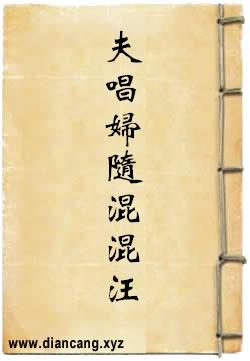 夫唱婦隨混混汪
www.diancang.xyz